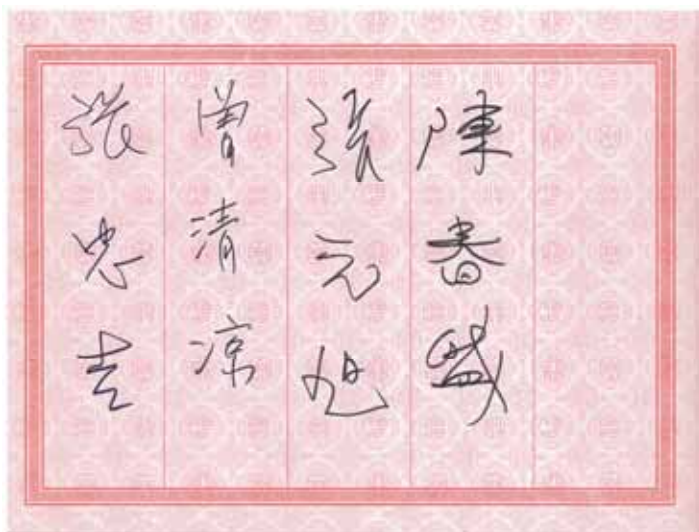 陳春盛
張元旭
曾清凉
張忠吉